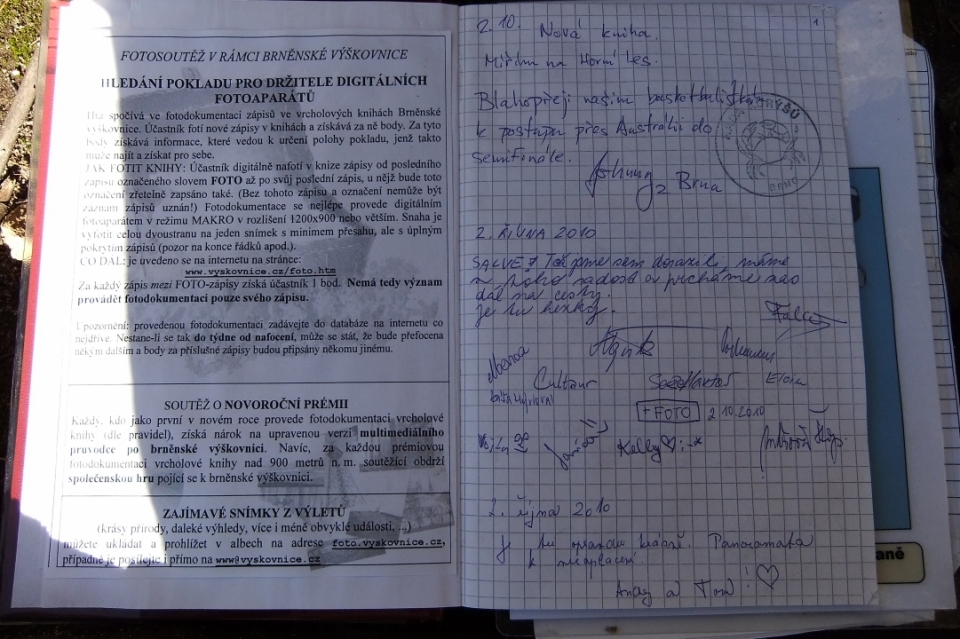 FOTOSOUTĚŽ V RÁMCI BRNĚNSKÉ VÝŠKOVNICE
HLEDÁNÍ POKLADU PRO DRŽITELE DIGITÁLNÍCH
FOTOAPARÁTŮ
Hra spočívá ve fotodokumentaci zápisů ve vrcholových knihách Brněnské
výškovnice. Účastník fotí nové zápisy v knihách a získává za ně body. Za tyto
body získává informace, které vedou k určení polohy pokladu, jenž takto
může najít a získat pro sebe.
JAK FOTIT KNIHY: Účastník digitálně nafotí v knize zápisy od posledního
zápisu označeného slovem FOTO až po svůj poslední zápis, u nějž bude toto
označení zřetelně zapsáno také. (Bez tohoto zápisu a označení nemůže být
záznam zápisů uznán!) Fotodokumentace se nejlépe provede digitálním
fotoaparátem v režimu MAKRO v rozlišení 1200x900 nebo větším. Snaha je
vyfotit celou dvoustranu na jeden snímek s minimem přesahu, ale s úplným
pokrytím zápisů (pozor na konce řádků apod.).
CO DÁL: je uvedeno se na internetu na stránce:
www.vyskovnice.cz/foto.htm
Za každý zápis mezi FOTO-zápisy získá účastník 1 bod. Nemá tedy význam
provádět fotodokumentaci pouze svého zápisu.
Upozornění: provedenou fotodokumentaci zadávejte do databáze na internetu co
nejdříve. Nestane-li se tak do týdne od nafocení, může se stát, že bude přefocena
někým dalším a body za příslušné zápisy budou připsány někomu jinému.
SOUTĚŽ O NOVOROČNÍ PRÉMII
Každý, kdo jako první v novém roce provede fotodokumentaci vrcholové
knihy (dle pravidel), získá nárok na upravenou verzi multimediálního
průvodce po brněnské výškovnici. Navíc, za každou prémiovou
fotodokumentaci vrcholové knihy nad 900 metrů n. m. soutěžící obdrží
společenskou hru pojící se k brněnské výškovnici.
ZAJÍMAVÉ SNÍMKY Z VÝLETŮ
(krásy přírody, daleké výhledy, více i méně obvyklé události, ...)
můžete ukládat a prohlížet v albech na adrese foto.vyskovnice.cz,
případně je posílejte i přímo na www@vyskovnice.cz
1
2.10. Nová kniha.
Mířím na Horní les.
Blahopřeji našim basketbalistkám
k postupu přes Austrálii do
semifinále.
Johnny z Brna
2. ŘÍJNA 2010
SALVE! Tak jsme sem dorazili, máme
dál na cesty.
je tu hezky.
Falco
+FOTO 2.10.2010
Kelly ♡ :-*
2. října 2010
Je tu opravdu krásně. Panoramata
k nezaplacení.
Andy a Tom! ♡